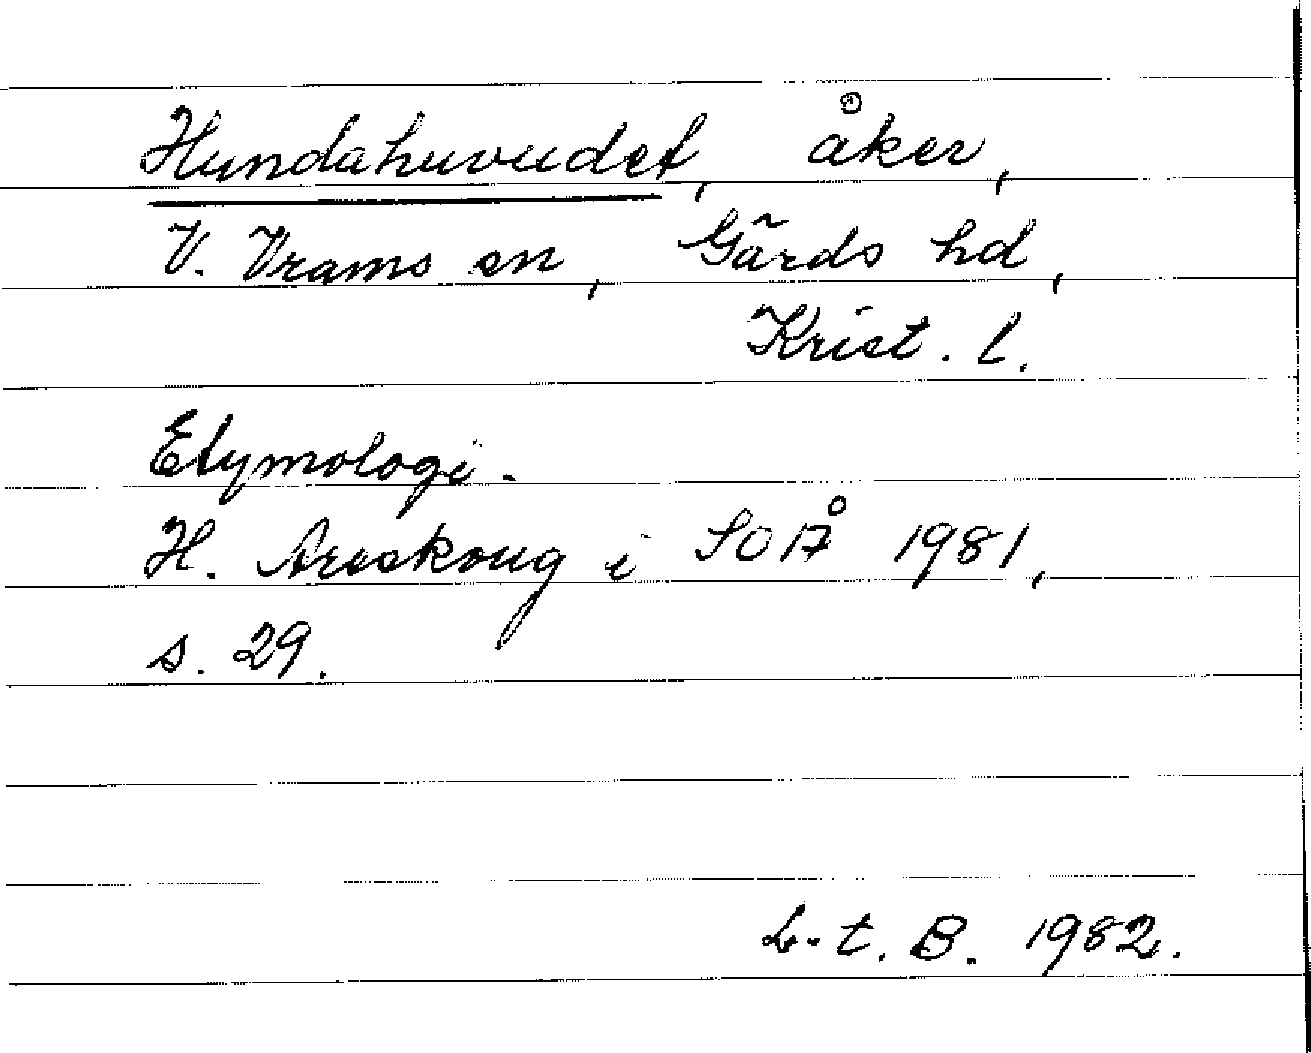 Hundahuvudet, åker,
V. Vrams sn, Gärds hd,
Krist. l.
Etymologi.
H. Areskoug i SOÅ 1981,
s. 29.
L. t. B. 1982.